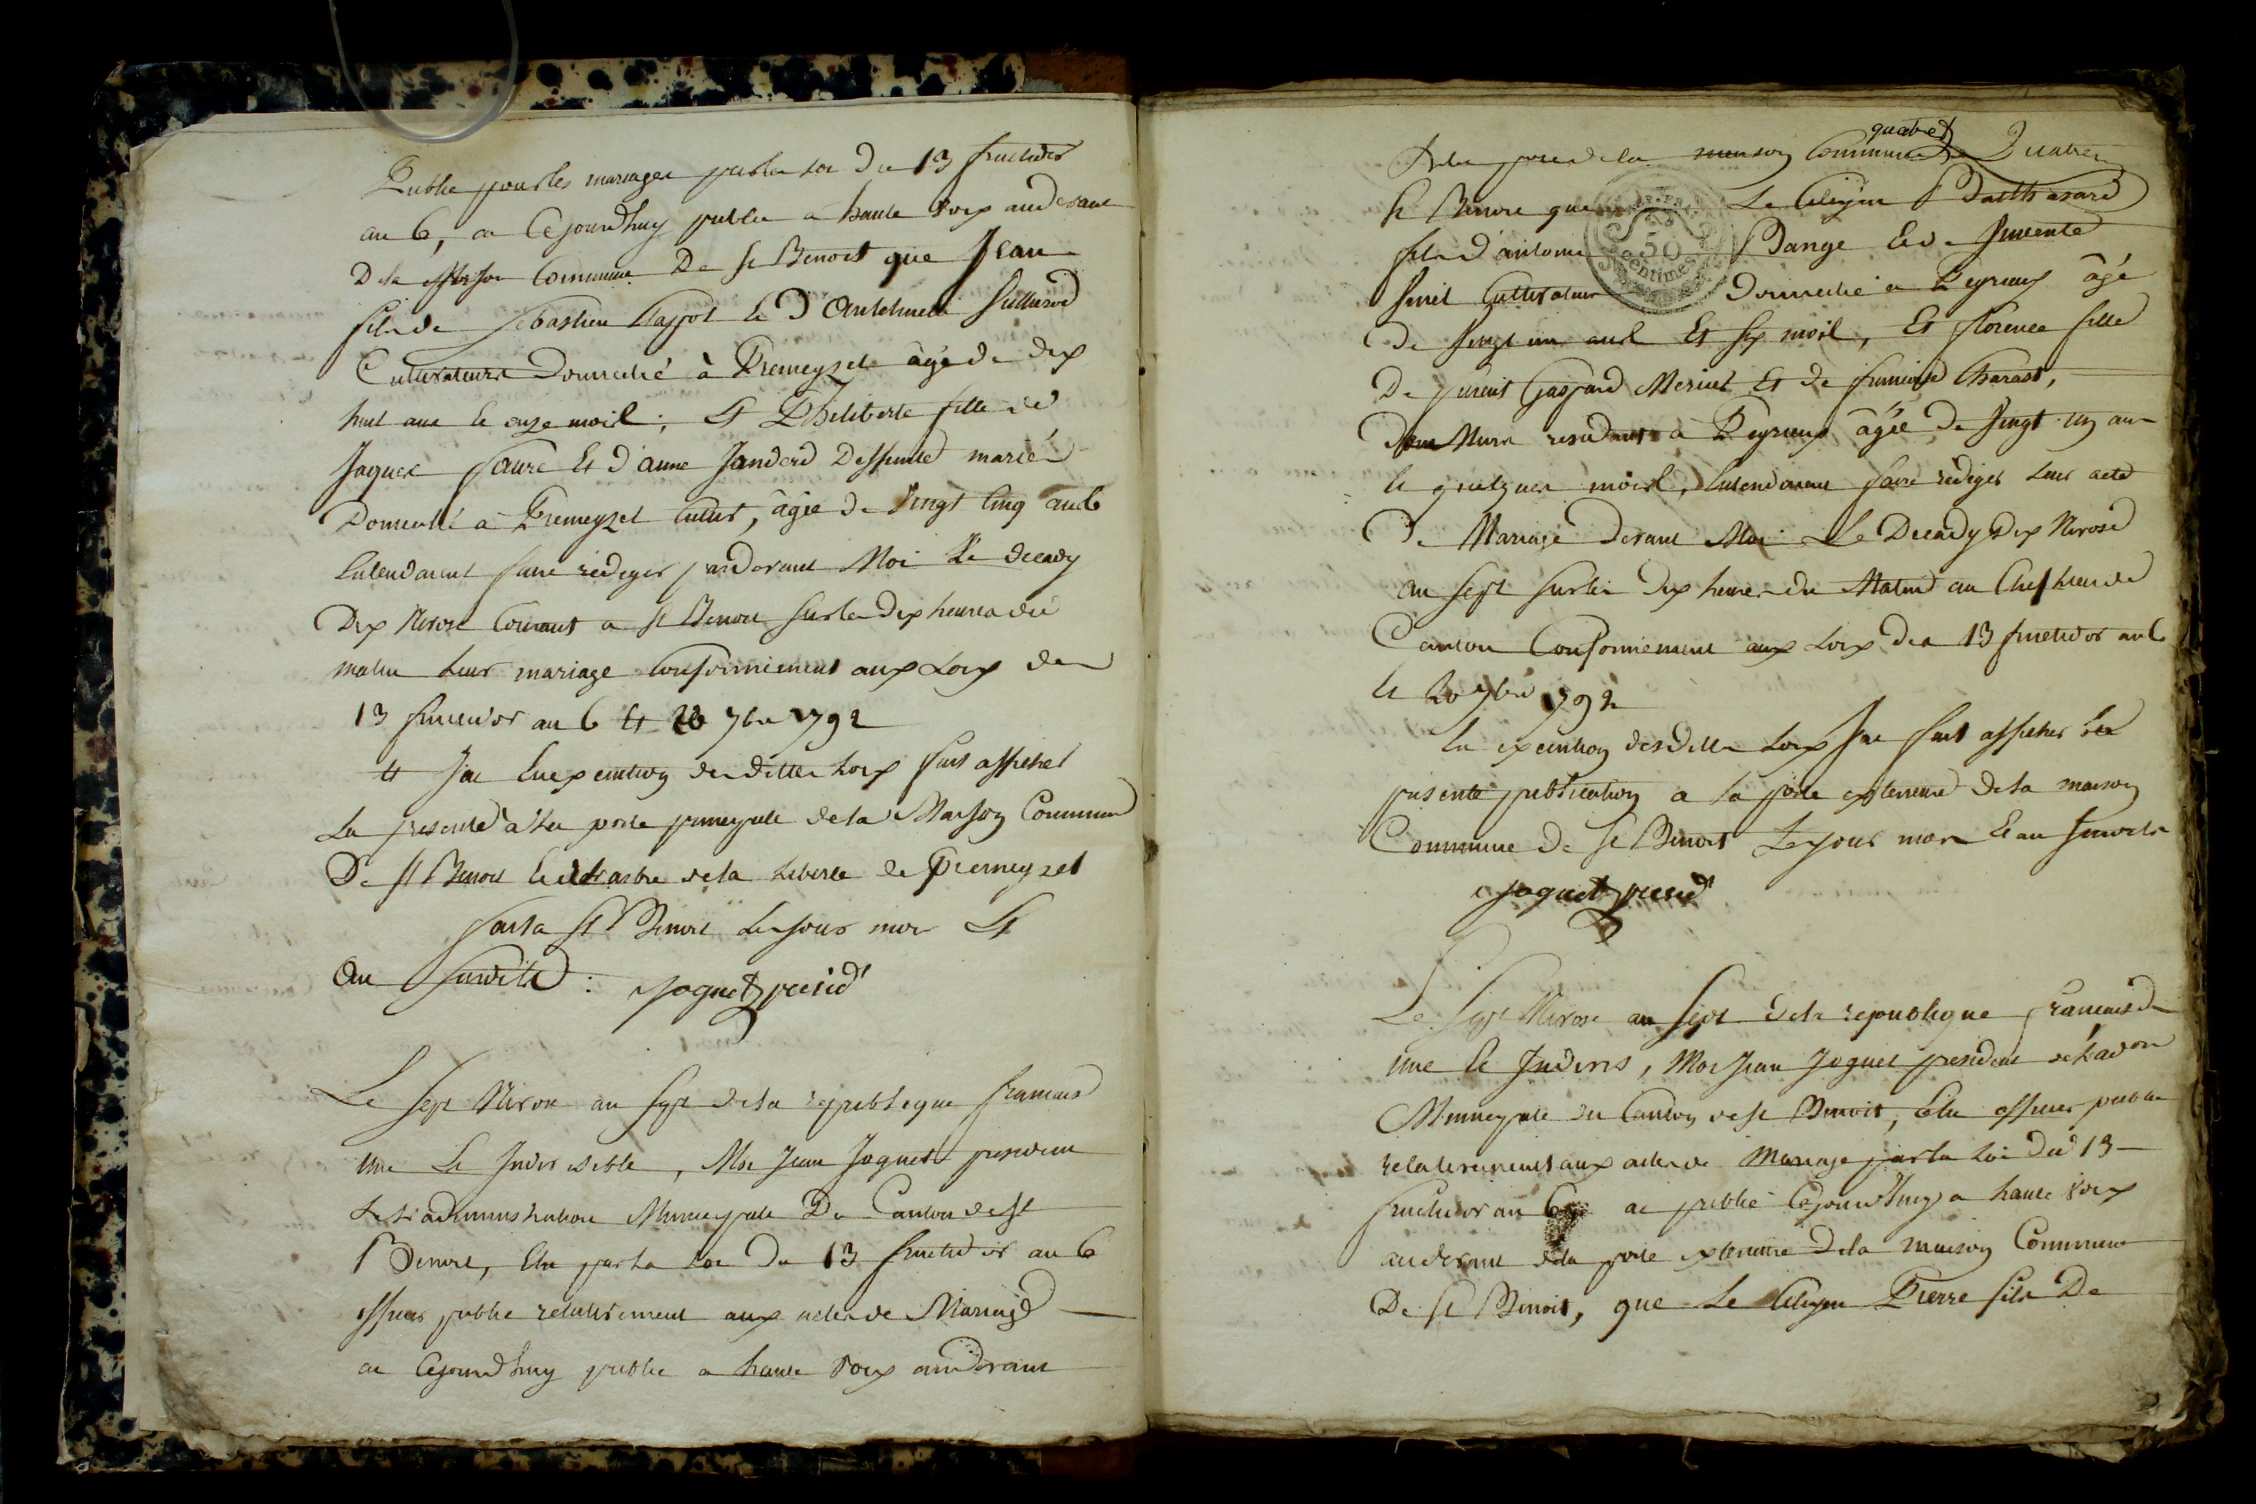 Publie pour les mariages par la loi du 13 fructidor
an 6, a Cejourdhuy publie a haute voix audevant
De la Maison Commune De St Benoit que Jean
fils de Sebastien Cappot et D'Anthelmette
Cultivateurs Domicilié à Premeyzel âgé de dix
huit ans et onze mois ; Et Philiberte fille de
Jaques Faure Et d'anne Jandard Deffunte mariés
Domicilié à Premeyzel Cultivt, âgée de Vingt Cinq ans
Entendanent faire rédiger pardevant Moi Le decady
Dix Nivose Courant a St Benoit sur les dix heures du
matin leur mariage Conformement aux Loix des
13 fructidor an 6 Et 20 7bre 1792
Et Jai En execution des dittes Loix fait afficher
La presente à la porte principale de la Maison Commune
De St Benoit Et à l'arbre de la Liberté de Premeyzel
fait a St Benoit Les jour mois Et
an Susdits : Joguet presidt
Le Sept Nivose an Sept de la republique francaise
une Et Indivisible, Moi Jean Joguet president
de L'administration Municipale Du Canton de St
Benoit, Elu par la Loi Du 13 fructidor an 6
officier public relativement aux actes de Mariage
ai Cejourdhuy publie a haute voix audevant
quatred
De la porte de la maison Commune de
St Benoit que Le Citoyen Balthazard
fils d'antoine Dange Et de Vincente
Cultivateur Domicilié a Peyrieux âgé
De Vingt un ans Et Six mois, Et florence fille
De Gaspard Meriet Et de Charast,
residants à Peyrieux âgée de Vingt un ans
Et quelques mois, Entendanent faire rédiger Leur acte
De Mariage devant Moi Le Decady Dix Nivose
an Sept Sur les dix heures du Matin au Chef lieu de
Canton Conformement aux Loix des 13 fructidor an 6
Et 20 7bre 1792
En execution desdittes Loix Jai fait afficher la
presente publication a la porte exterieure de la maison
Commune de St Benoit Les jour mois Et an susdits
Joguet presidt
50
centimes
Le Sept Nivose an Sept de la republique francaise
une Et Indivis, Moi Jean Joguet president de L'adon
Municipale du Canton de St Benoit, Elu officier public
relativement aux actes de Mariage par la Loi du 13
fructidor an 6 ai publié Cejourdhuy a haute voix
audevant de la porte exterieure De la maison Commune
De St Benoit, que Le Citoyen Pierre fils De